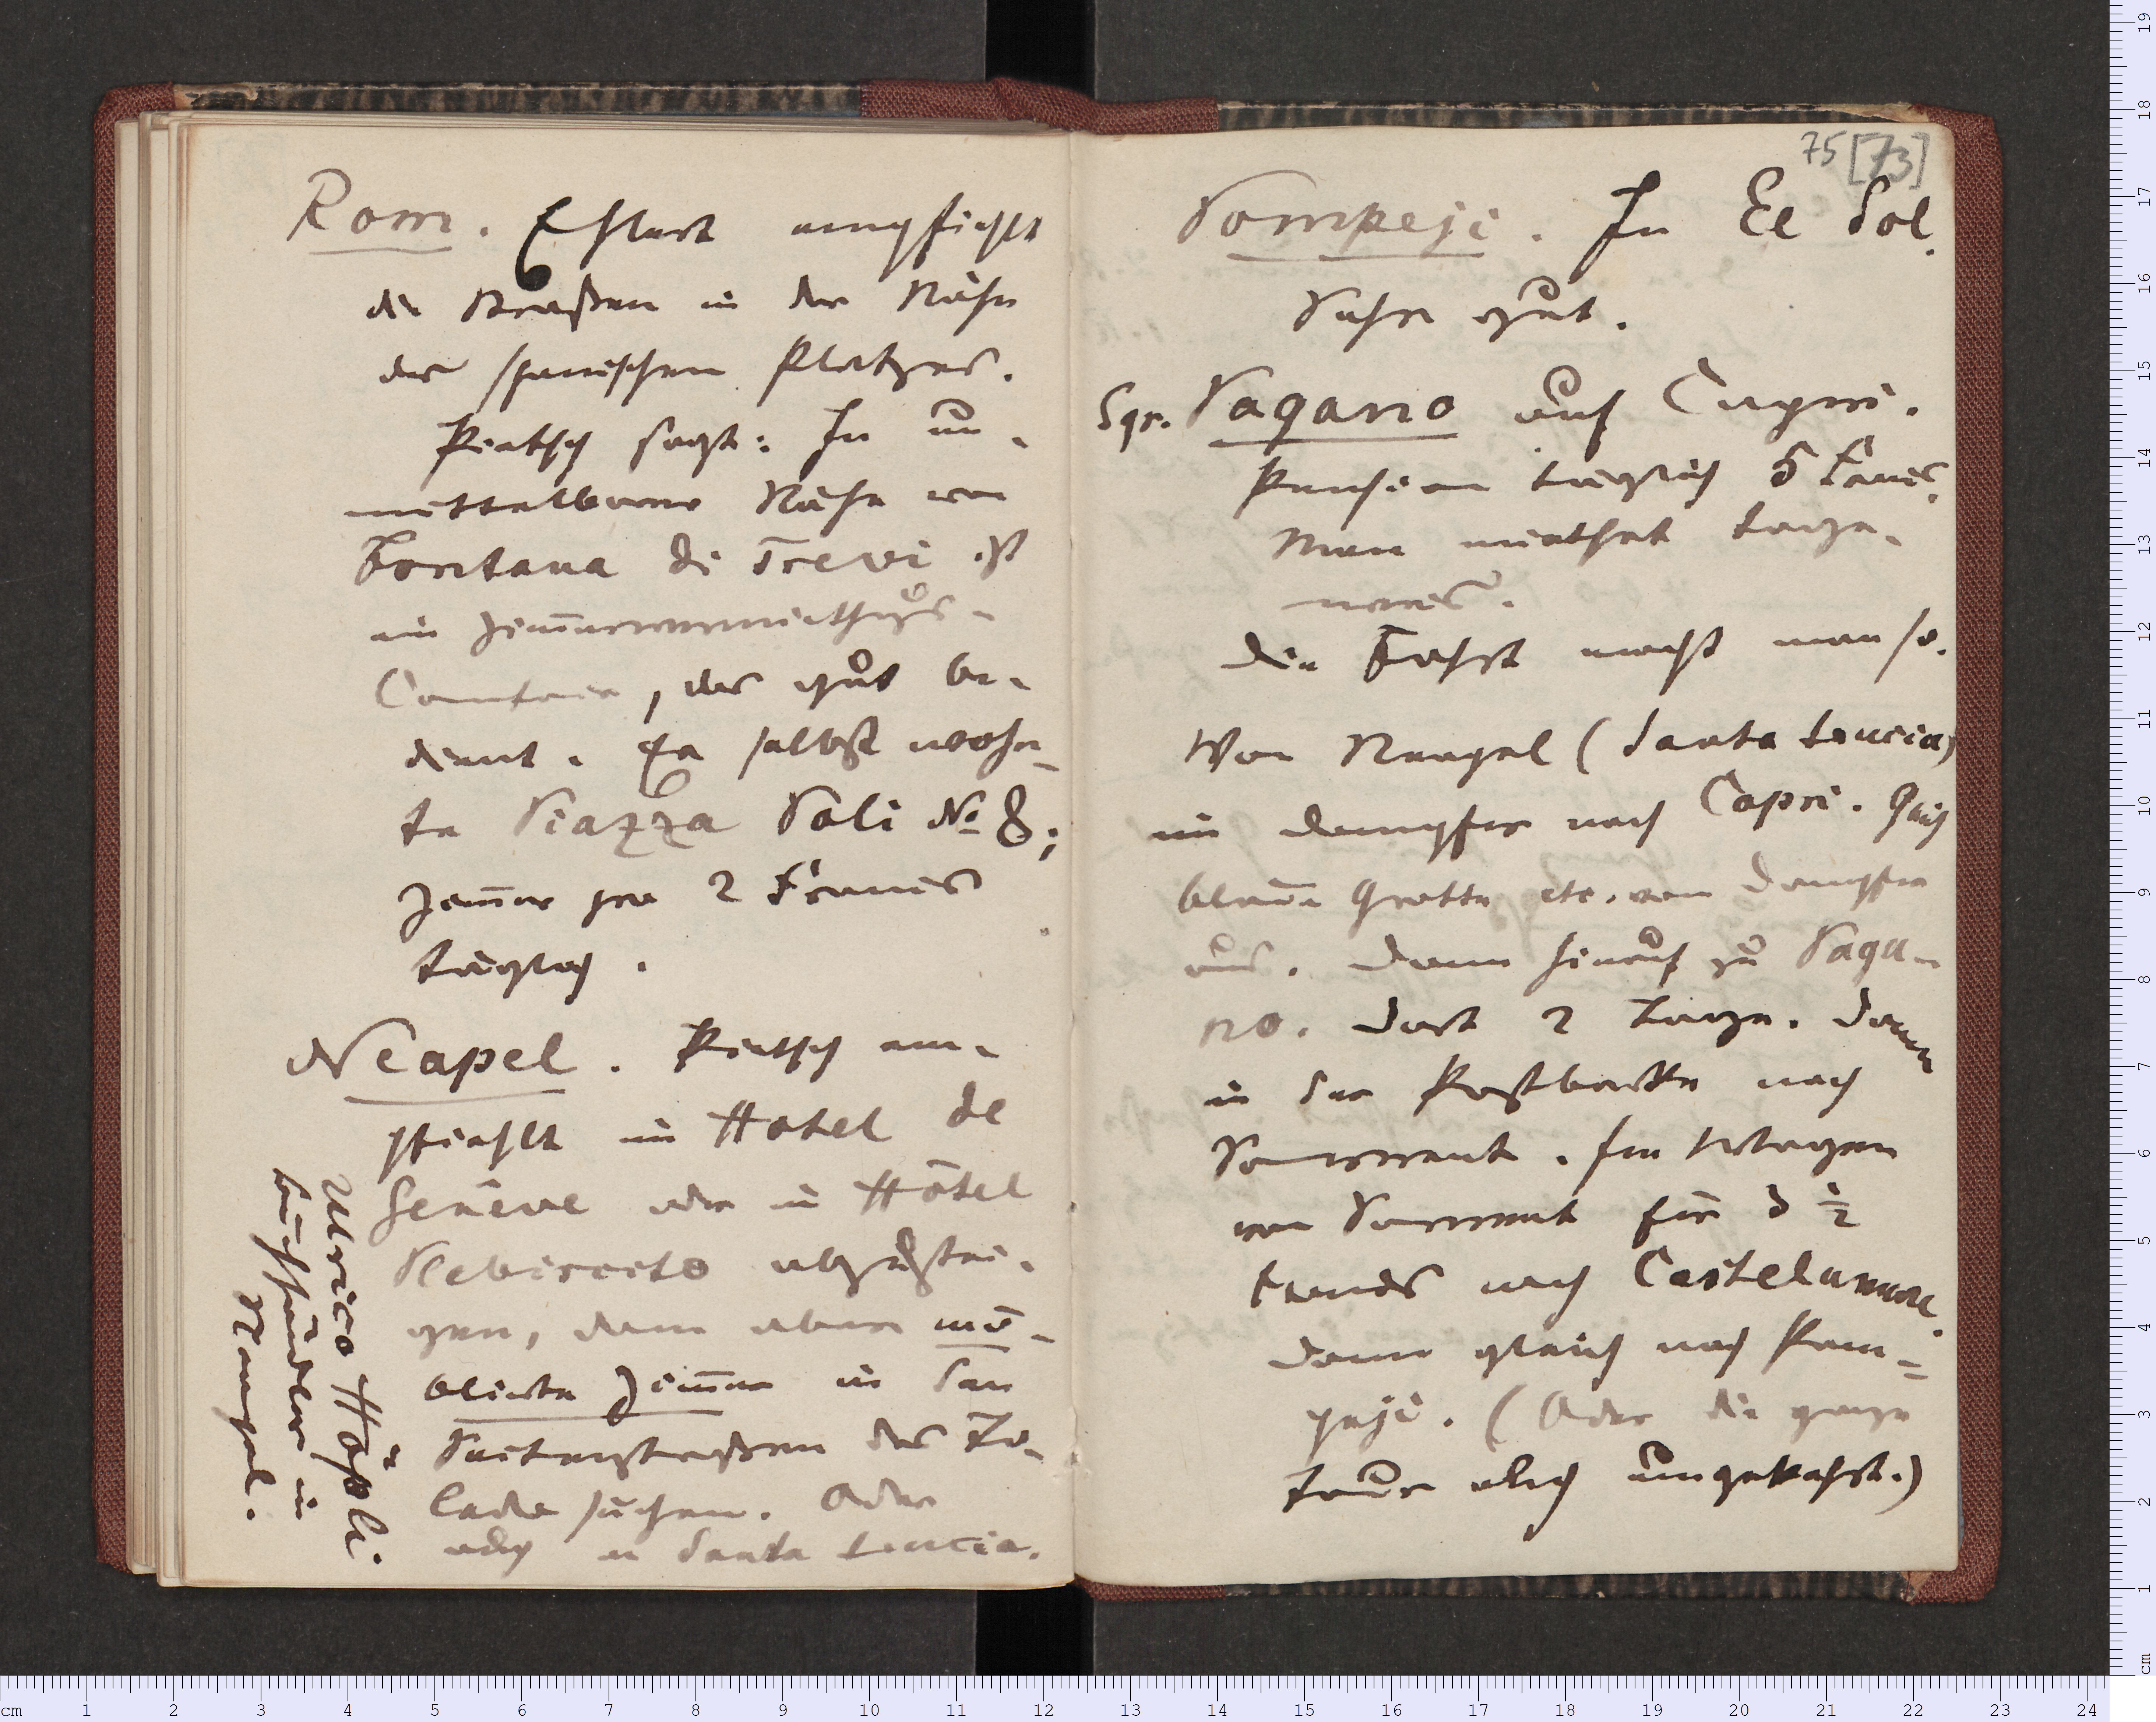 Rom. Ehlert empfiehlt
die Straßen in der Nähe
des spanischen Platzes.
Pietsch sagt: In un-
mittelbarer Nähe von
Fontana di Trevi ist
ein Zim̄ervermiethgs-
Comtoir, das gut be-
dient. Er selbst wohn-
te Piazza Poli No 8;
Zim̄er pro 2 Francs
täglich.
Neapel. Pietsch em-
pfiehlt im Hotel de
Genève oder im Hôtel
Plebiscito abzustei-
gen, dann aber mö-
blirte Zim̄er in den
Seitenstraßen des To-
ledo suchen. Oder
auch in Santa Lucia.
Ulrico Höpli.
Buchhändler in
Neapel.
75 [73]
Pompeji. Im El Sol.
Sehr gut.
Sgr. Pagano auf Capri.
Pension täglich 5 Francs.
Man miethet tage-
weis.
Die Fahrt macht man so.
Von Neapel (Santa Lucia)
im Dampfer nach Capri. Gleich
blaue Grotte etc. vom Dampfer
aus. Dann hinauf zu Paga-
no. Dort 2 Tage. Dann
in der Postbarke nach
Sorrent. Im Wagen
von Sorrent für 3 ½
Francs nach Castelamare.
Dann gleich nach Pom-
peji. (Oder die ganze
Tour auch umgekehrt.)